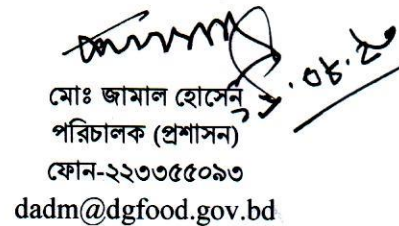 মোঃ জামাল হোসেন
পরিচালক (প্রশাসন)
ফোন-২২৩৩৫৫০৯৩
dadm@dgfood.gov.bd